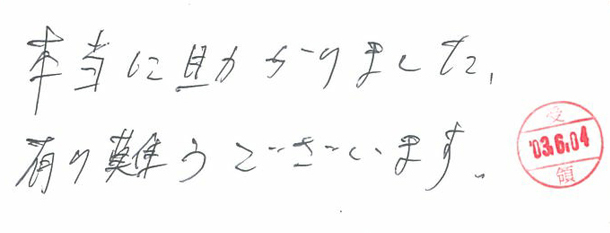 本当に助かりました,
有り難うございます。
受
'03.6.04
領